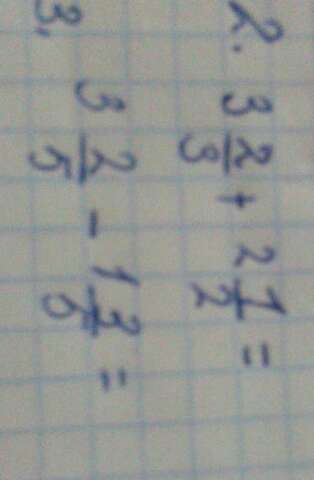 2. 3 2/3 + 2 1/2 =
3. 3 2/5 - 1 3/5 =